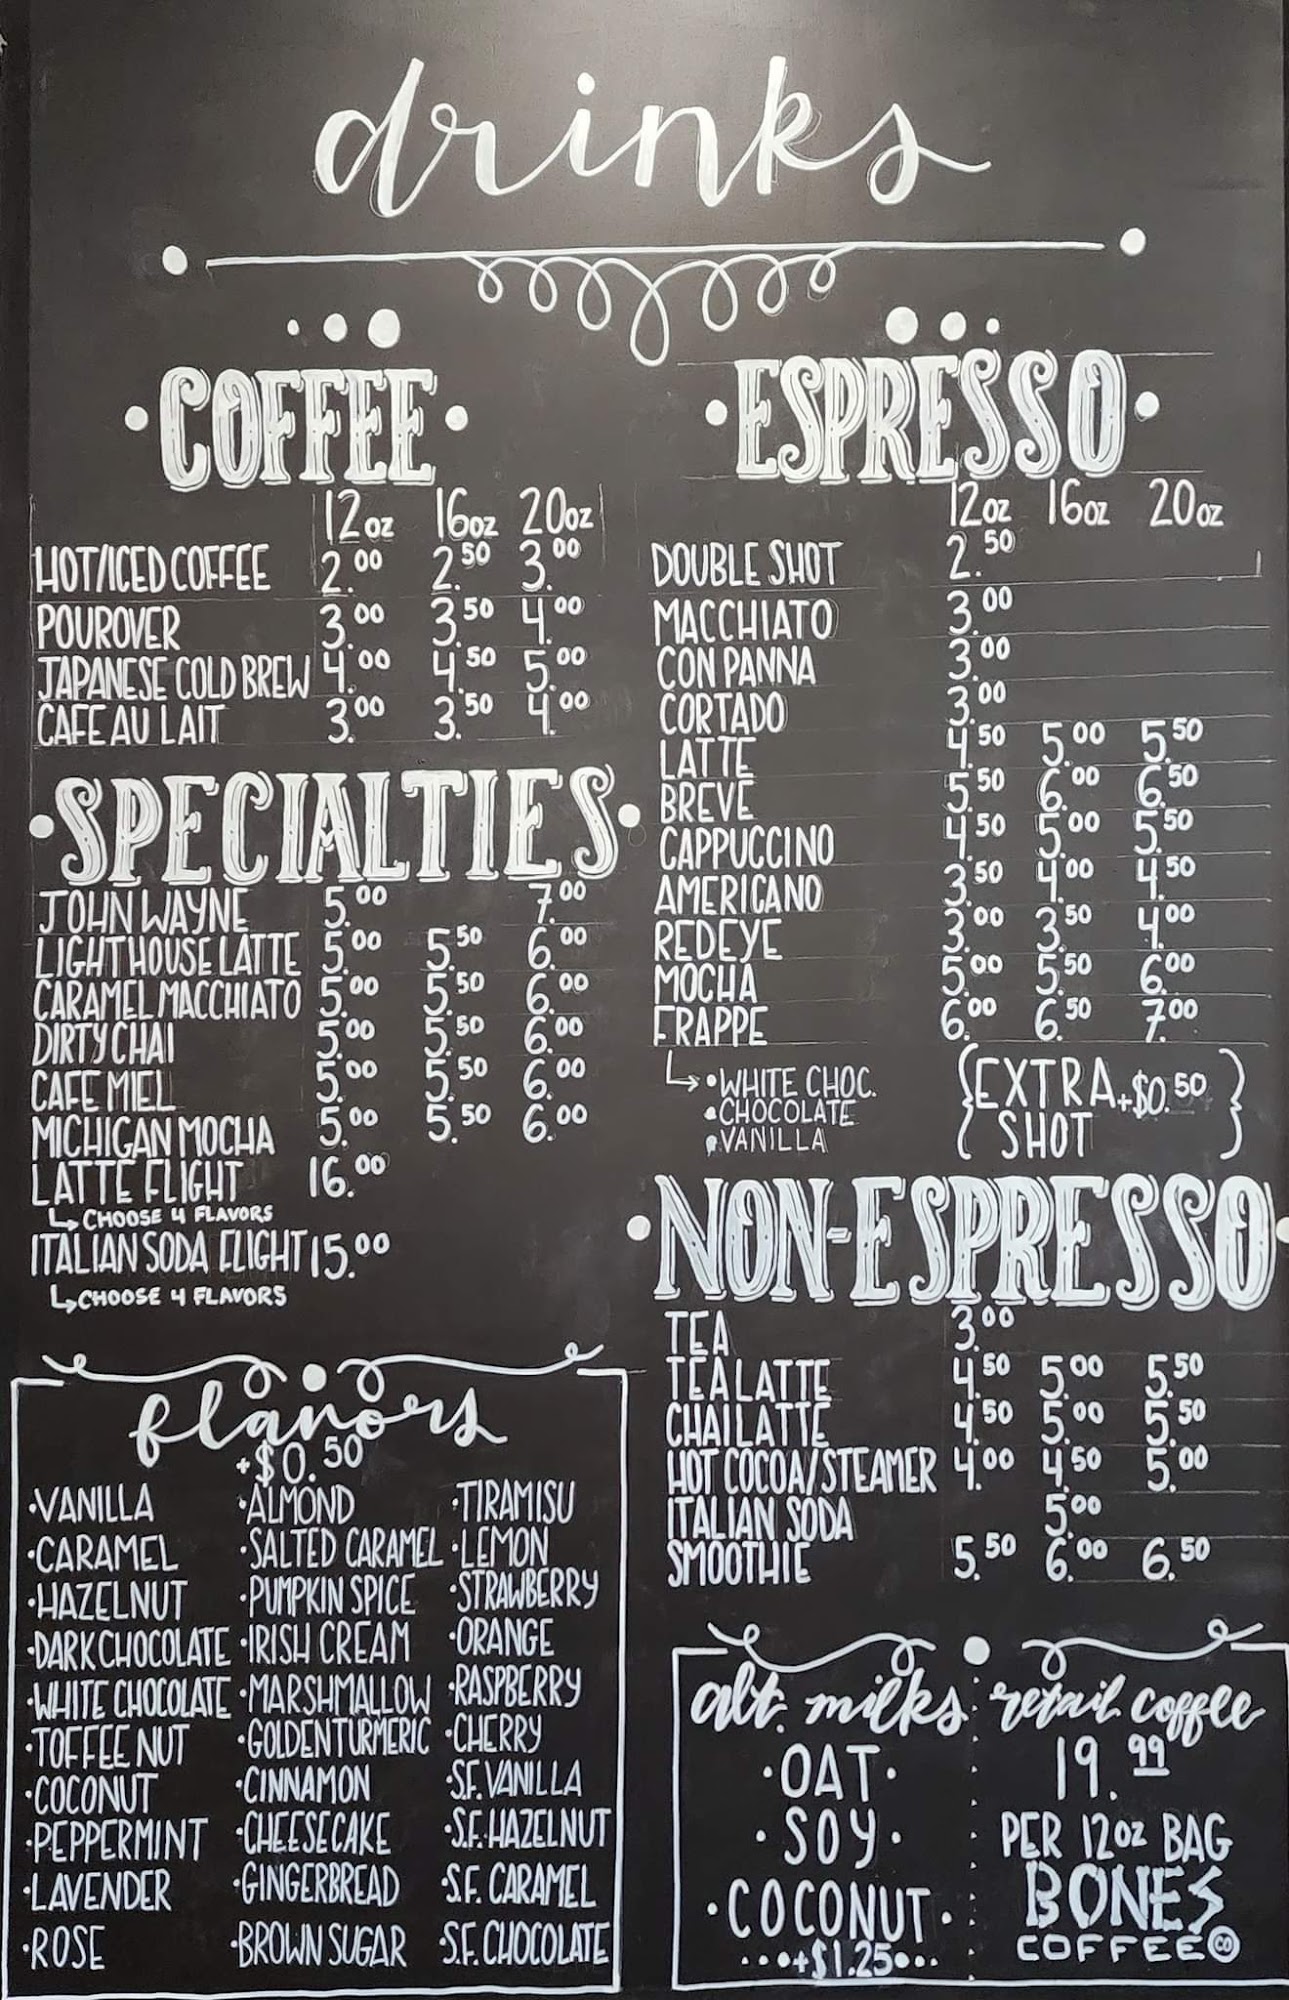 drinks
COFFEE
12oz 16oz 20oz
HOT/ICED COFFEE 2.00 2.50 3.00
POUROVER 3.00 3.50 4.00
JAPANESE COLD BREW 4.00 4.50 5.00
CAFE AU LAIT 3.00 3.50 4.00
SPECIALTIES
JOHN WAYNE 5.00 7.00
LIGHTHOUSE LATTE 5.00 5.50 6.00
CARAMEL MACCHIATO 5.00 5.50 6.00
DIRTY CHAI 5.00 5.50 6.00
CAFE MIEL 5.00 5.50 6.00
MICHIGAN MOCHA 5.00 5.50 6.00
LATTE FLIGHT 16.00
CHOOSE 4 FLAVORS
ITALIAN SODA FLIGHT 15.00
CHOOSE 4 FLAVORS
ESPRESSO
12oz 16oz 20oz
DOUBLE SHOT 2.50
MACCHIATO 3.00
CON PANNA 3.00
CORTADO 3.00
LATTE 4.50 5.00 5.50
BREVE 5.50 6.00 6.50
CAPPUCCINO 4.50 5.00 5.50
AMERICANO 3.50 4.00 4.50
REDEYE 3.00 3.50 4.00
MOCHA 5.00 5.50 6.00
FRAPPE 6.00 6.50 7.00
•WHITE CHOC.
•CHOCOLATE
•VANILLA
{EXTRA +$0.50}
SHOT
NON-ESPRESSO
TEA 3.00
TEA LATTE 4.50 5.00 5.50
CHAI LATTE 4.50 5.00 5.50
HOT COCOA/STEAMER 4.00 4.50 5.00
ITALIAN SODA 5.00
SMOOTHIE 5.50 6.00 6.50
flavors
+$0.50
•VANILLA •ALMOND •TIRAMISU
•CARAMEL •SALTED CARAMEL •LEMON
•HAZELNUT •PUMPKIN SPICE •STRAWBERRY
•DARK CHOCOLATE •IRISH CREAM •ORANGE
•WHITE CHOCOLATE •MARSHMALLOW •RASPBERRY
•TOFFEE NUT •GOLDEN TURMERIC •CHERRY
•COCONUT •CINNAMON •S.F. VANILLA
•PEPPERMINT •CHEESECAKE •S.F. HAZELNUT
•LAVENDER •GINGERBREAD •S.F. CARAMEL
•ROSE •BROWN SUGAR •S.F. CHOCOLATE
alt. milks
•OAT•
•SOY•
•COCONUT•
•••+$1.25•••
retail coffee
19.99
PER 12oz BAG
BONES
COFFEE CO